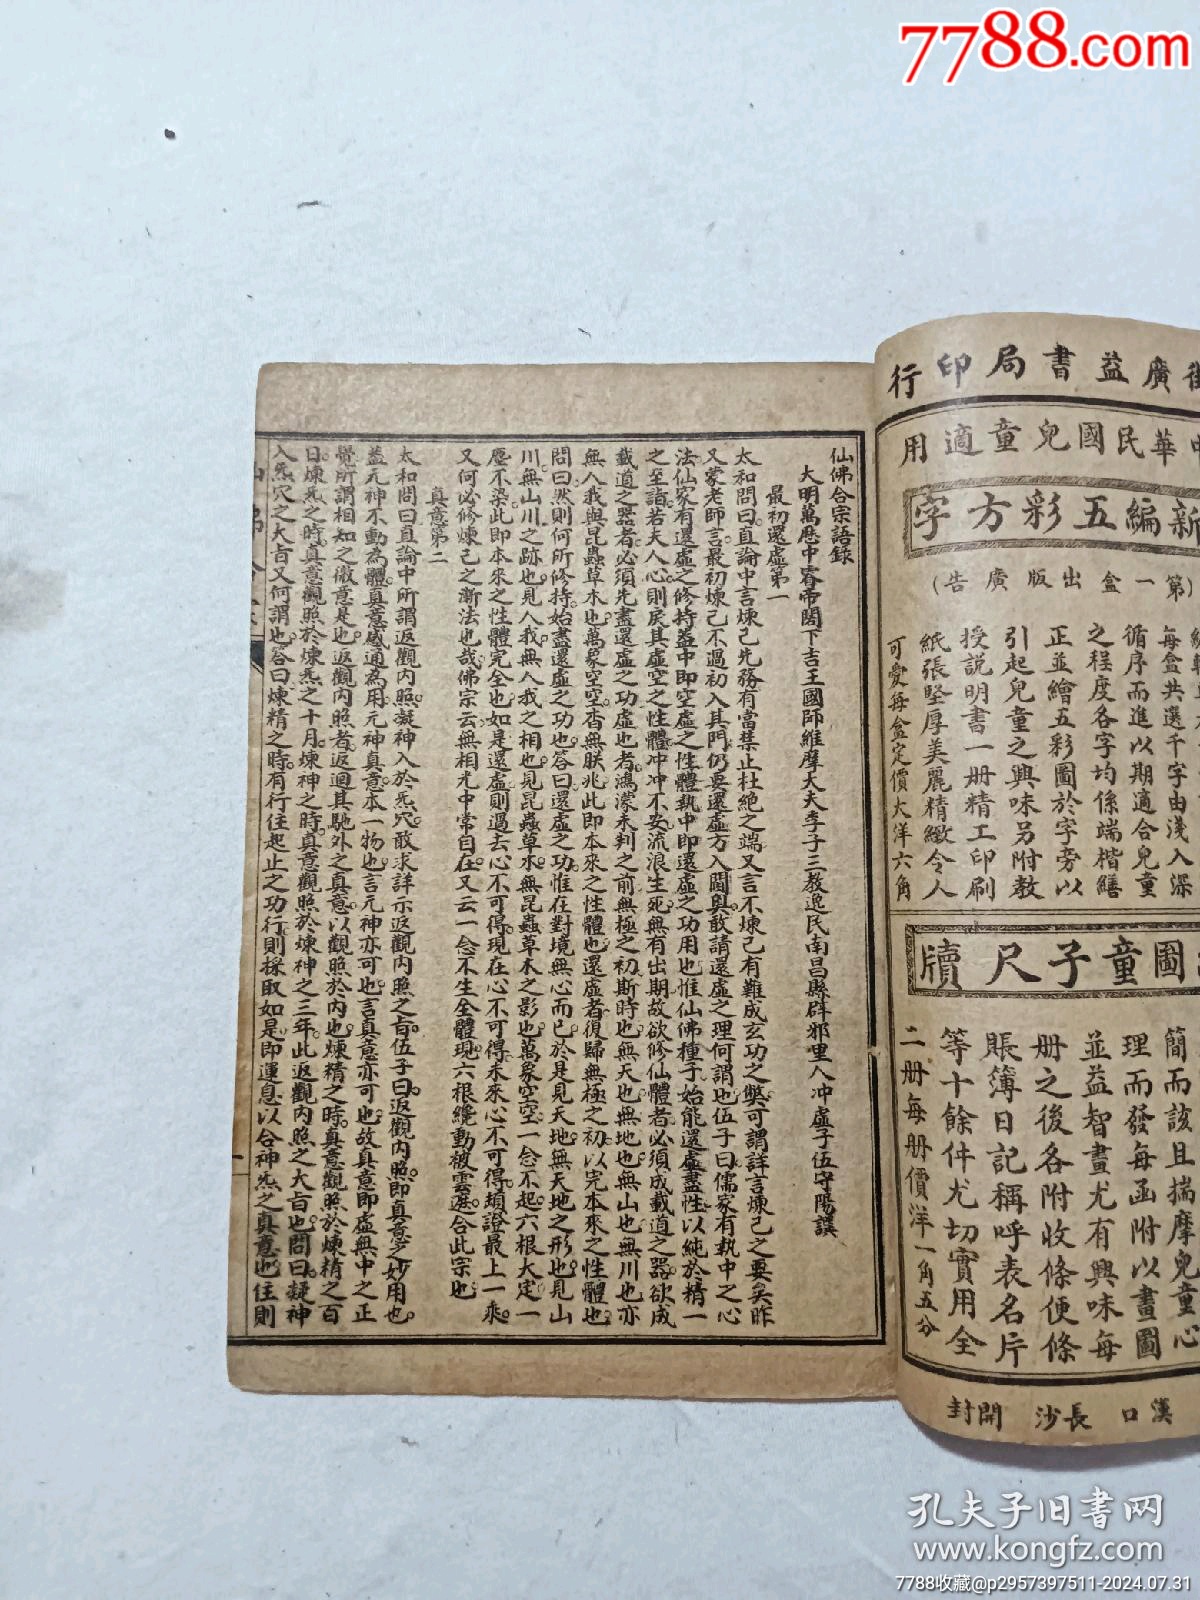 7788.com
仙佛合宗語錄
大明萬歷中睿帝閣下吉王國師維摩大夫季子三教逸民南昌縣辟邪里人冲虛子伍守陽譔
最初還虛第一
太和問曰直論中言煉己先務有當禁止杜絕之端又言不煉己有難成玄功之弊可謂詳言煉己之要矣昨
又蒙老師言最初煉己不過初入其門仍要還虛方入閫奧敢請還虛之理何謂也伍子曰儒家有執中之心
法仙家有還虛之修持蓋中即空虛之性體執中即還虛之功用也惟仙佛種子始能還虛盡性以純於精一
之至詣若夫人心則戾其虛空之性體冲冲不安流浪生死無有出期故欲修仙體者必須成載道之器欲成
載道之器者必須先盡還虛之功虛也者鴻濛未判之前無極之初斯時也無天也無地也無山也無川也亦
無人我與昆蟲草木也萬象空空杳無朕兆此即本來之性體也還虛者復歸無極之初以完本來之性體也
問曰然則何所修持始盡還虛之功也答曰還虛之功惟在對境無心而已於是見天地無天地之形也見山
川無山川之跡也見人我無人我之相也見昆蟲草木無昆蟲草木之影也萬象空空一念不起六根大定一
塵不染此即本來之性體完全也如是還虛則過去心不可得現在心不可得未來心不可得頓證最上一乘
又何必修煉己之漸法也哉佛宗云無相光中常自在又云一念不生全體現六根纔動被雲遮合此宗也
真意第二
太和問曰直論中所謂返觀內照凝神入於炁穴敢求詳示返觀內照之旨伍子曰返觀內照即真意之妙用也
蓋元神不動為體真意感通為用元神真意本一物也言元神亦可也言真意亦可也故真意即虛無中之正
覺所謂相知之微意是也返觀內照者返迴其馳外之真意以觀照於內也煉精之時真意觀照於煉精之百
日煉炁之時真意觀照於煉炁之十月煉神之時真意觀照於煉神之三年此返觀內照之大旨也問曰凝神
入炁穴之大旨又何謂也答曰煉精之時有行住起止之功行則採取如是即運息以合神炁之真意也住則
街廣益書局印行
中華民國兒童適用
新編五彩方字
(第一盒出版廣告)
每盒共選千字由淺入深
循序而進以期適合兒童
之程度各字均係端楷繕
正並繪五彩圖於字旁以
引起兒童之興味另附教
授說明書一册精工印刷
紙張堅厚美麗精緻令人
可愛每盒定價大洋六角
圖童子尺牘
簡而該且揣摩兒童心
理而發每函附以畫圖
並益智畫尤有興味每
册之後各附收條便條
賬簿日記稱呼表名片
等十餘件尤切實用全
二册每册價洋一角五分
漢口 長沙 開封
孔夫子旧书网
www.kongfz.com
7788收藏@p2957397511-2024.07.31